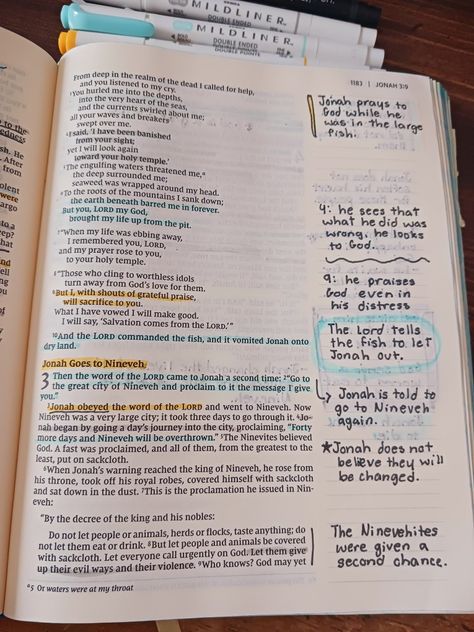 MILDLINER
DOUBLE ENDED
MILDLINER
DOUBLE ENDED
MILDLINER
DOUBLE ENDED
1183 | JONAH 3:9
From deep in the realm of the dead I called for help,
and you listened to my cry.
³You hurled me into the depths,
into the very heart of the seas,
and the currents swirled about me;
all your waves and breakers
swept over me.
⁴I said, ‘I have been banished
from your sight;
yet I will look again
toward your holy temple.’
⁵The engulfing waters threatened me,ᵃ
the deep surrounded me;
seaweed was wrapped around my head.
⁶To the roots of the mountains I sank down;
the earth beneath barred me in forever.
But you, LORD my God,
brought my life up from the pit.
⁷“When my life was ebbing away,
I remembered you, LORD,
and my prayer rose to you,
to your holy temple.
⁸“Those who cling to worthless idols
turn away from God’s love for them.
⁹But I, with shouts of grateful praise,
will sacrifice to you.
What I have vowed I will make good.
I will say, ‘Salvation comes from the LORD.’”
¹⁰And the LORD commanded the fish, and it vomited Jonah onto
dry land.
Jonah Goes to Nineveh
3 Then the word of the LORD came to Jonah a second time: ²“Go to
the great city of Nineveh and proclaim to it the message I give
you.”
³Jonah obeyed the word of the LORD and went to Nineveh. Now
Nineveh was a very large city; it took three days to go through it. ⁴Jo-
nah began by going a day’s journey into the city, proclaiming, “Forty
more days and Nineveh will be overthrown.” ⁵The Ninevites believed
God. A fast was proclaimed, and all of them, from the greatest to the
least, put on sackcloth.
⁶When Jonah’s warning reached the king of Nineveh, he rose from
his throne, took off his royal robes, covered himself with sackcloth
and sat down in the dust. ⁷This is the proclamation he issued in Nin-
eveh:
“By the decree of the king and his nobles:
Do not let people or animals, herds or flocks, taste anything; do
not let them eat or drink. ⁸But let people and animals be covered
with sackcloth. Let everyone call urgently on God. Let them give
up their evil ways and their violence. ⁹Who knows? God may yet
ᵃ5 Or waters were at my throat
Jonah prays to
God while he
was in the large
fish.
4: he sees that
what he did was
wrong, he looks
to God.
9: he praises
God even in
his distress
The Lord tells
the fish to let
Jonah out.
↳ Jonah is told to
go to Nineveh
again.
★Jonah does not
believe they will
be changed.
The Ninevehites
were given a
second chance.